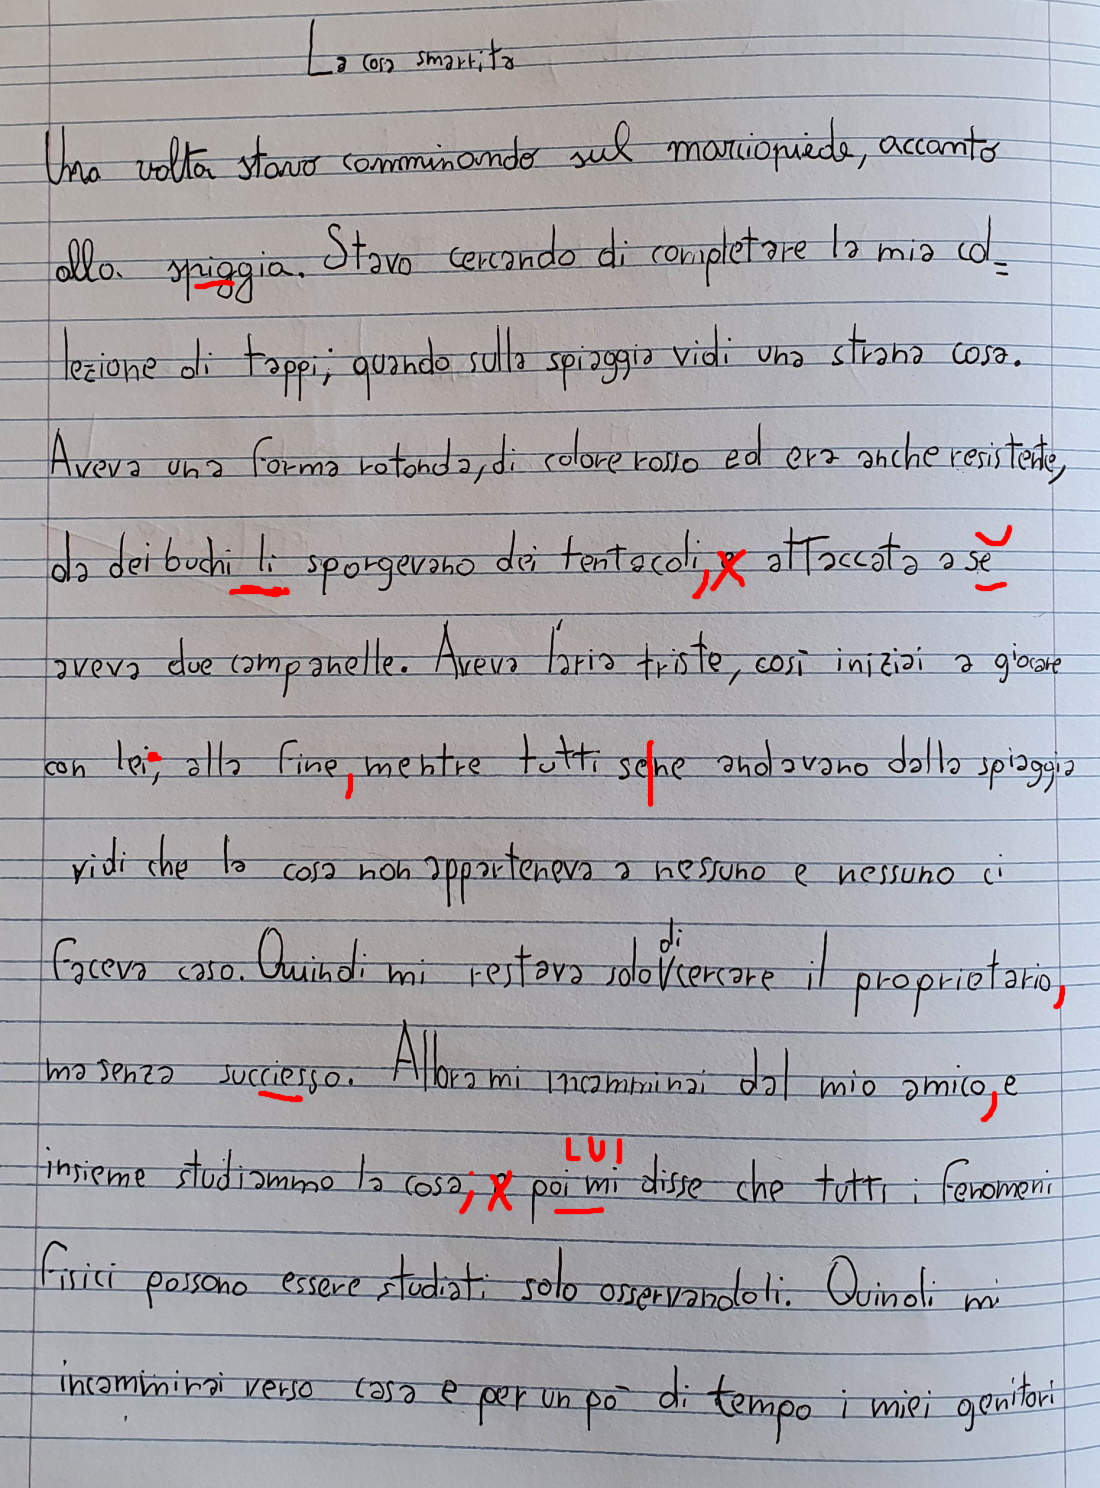 La cosa smarrita
Una volta stavo camminando sul marciapiede, accanto
alla spiggia. Stavo cercando di completare la mia col=
lezione di tappi; quando sulla spiaggia vidi una strana cosa.
Aveva una forma rotonda, di colore rosso ed era anche resistente,
da dei buchi li sporgevano dei tentacoli, e attaccata a se
aveva due campanelle. Aveva l'aria triste, così iniziai a giocare
con lei; alla fine, mentre tutti sene andavano dalla spiaggia
vidi che la cosa non apparteneva a nessuno e nessuno ci
faceva caso. Quindi mi restava solo di cercare il proprietario,
ma senza succiesso. Allora mi incamminai dal mio amico, e
LUI
insieme studiammo la cosa; e poi mi disse che tutti i fenomeni
fisici possono essere studiati solo osservandoli. Quindi mi
incamminai verso casa e per un pò di tempo i miei genitori